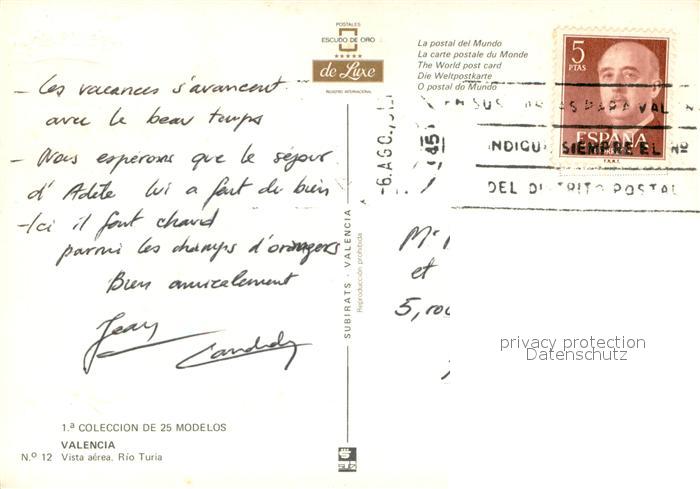 POSTALES
ESCUDO DE ORO
de Luxe
REGISTRO INTERNACIONAL
La postal del Mundo
La carte postale du Monde
The World post card
Die Weltpostkarte
O postal do Mundo
5
PTAS
ESPAÑA
- Les vacances s'avancent
avec le beau temps
- Nous esperons que le séjour
d'Adèle lui a fait du bien
- Ici il fait chaud
parmi les champs d'orangers
Bien amicalement
Jean
6 AGO.
45
PARA VAL
INDIQUE SIEMPRE EL Nº
DEL DISTRITO POSTAL
et
5,
SUBIRATS - VALENCIA
Reproducción prohibida
privacy protection
Datenschutz
1.ª COLECCION DE 25 MODELOS
VALENCIA
N.º 12 Vista aérea. Río Turia
subi